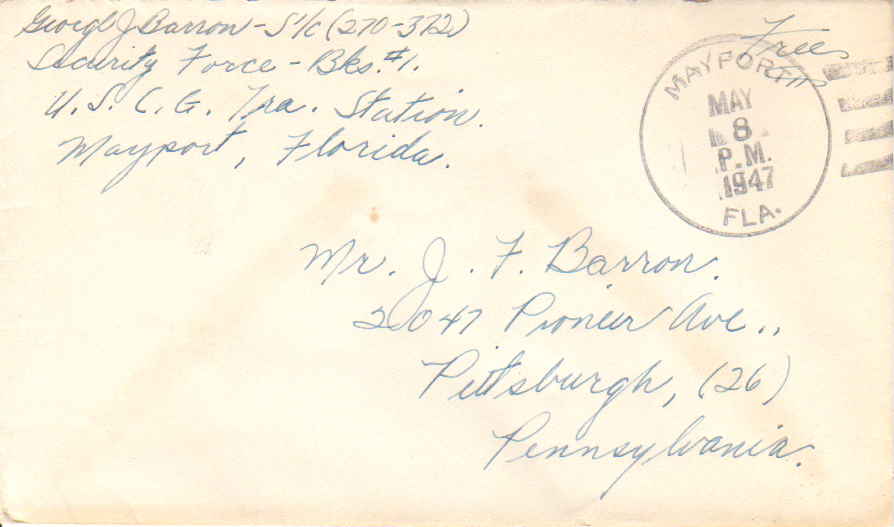 George J Barron - S 1/c (270-372)
Security Force - Bks. #1.
U. S. C. G. Tra. Station.
Mayport, Florida.
Free
MAYPORT
MAY
8
P.M.
1947
FLA.
Mr. J. F. Barron.
2047 Pioneer Ave.,
Pittsburgh, (26)
Pennsylvania.